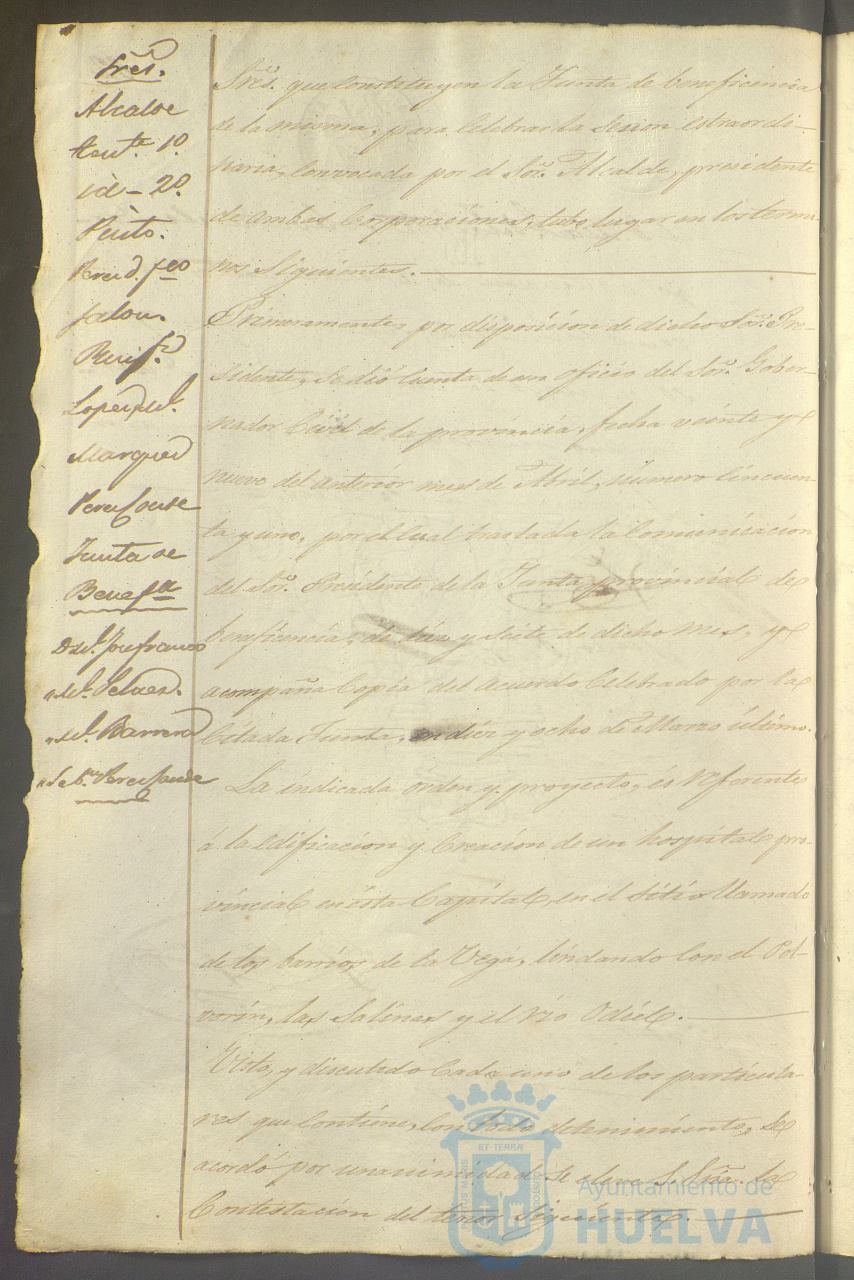 Sres.
Alcalde
tente. 1º.
id - 2º.
Perito.
Jalon.
Lopez
Marquez
Perez
Junta de
Benefª
Barrera
Sres. que constituyen la Junta de beneficencia
de la misma, para celebrar la sesion estraordi-
naria, convocada por el Sor. Alcalde, presidente
de ambas Corporaciones, tubo lugar en los termi-
nos siguientes.
Primeramente, por disposicion de dicho Sor. Pre-
sidente, se dió cuenta de un oficio del Sor. Gober-
nador Civil de la provincia, fecha veinte y
nueve del anterior mes de Abril, número cincuen-
ta y uno, por el cual traslada la comunicacion
del Sor. Presidente de la Junta provincial de
beneficencia, de diez y siete de dicho mes, y
acompaña copia del acuerdo celebrado por la
citada Junta, en diez y ocho de Marzo último.
La indicada orden y proyecto, es referente
á la edificacion y creacion de un hospital pro-
vincial en esta Capital, en el sitio llamado
de los barrios de la Vega, lindando con el Pol-
vorin, las Salinas y el rio Odiel.
Visto, y discutido cada uno de los particula-
res que contiene, con todo detenimiento, se
acordó por unanimidad se eleve á S. Sria. la
Contestacion del tenor siguiente.
ET TERRÆ
Ayuntamiento de
HUELVA